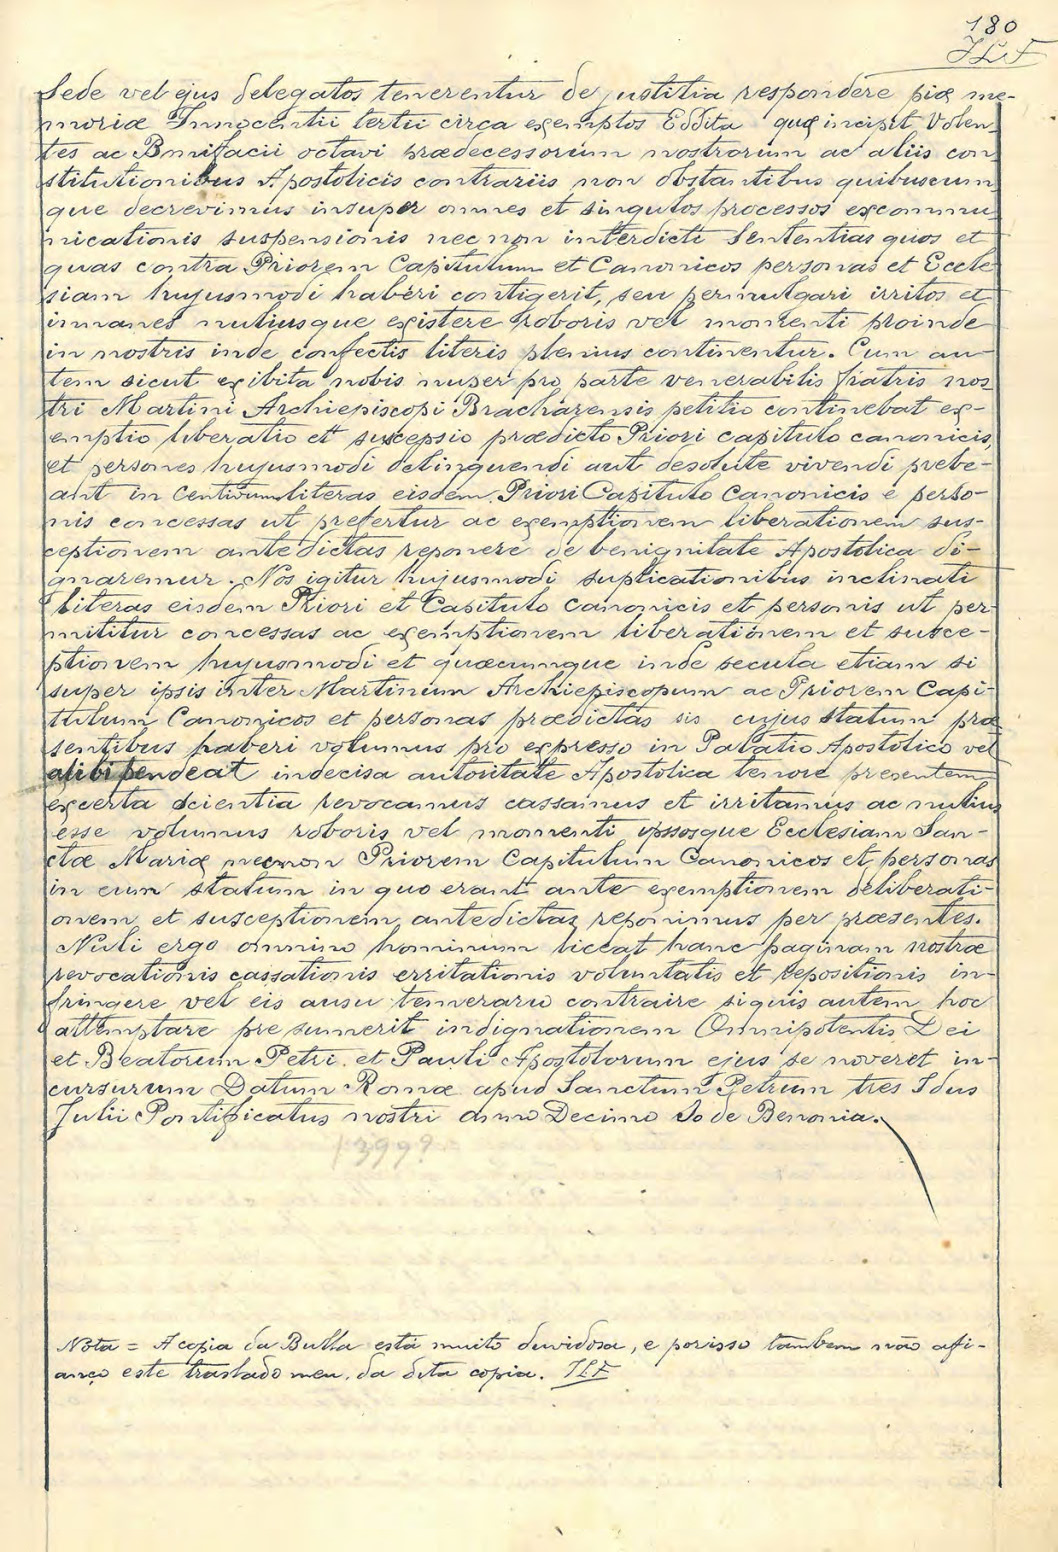 180
JLF
Sede vel ejus delegatos tenerentur de justitia respondere piæ me-
moriæ Innocentii tertii circa exemptos Eddita quæ incipit Volen-
tes ac Bonifacii octavi prædecessorum nostrorum ac aliis con
stitutionibus Apostolicis contrariis non obstantibus quibuscum
que decrevimus insuper omnes et singulos processos excommu
nicationis suspensionis nec non interdicti Sententias quos et
quas contra Priorem Capitulum et Canonicos personas et Eccle
siam hujusmodi haberi contigerit, seu permulgari irritos et
innanes nuliusque existere roboris vel momenti proinde
in nostris inde confectis literis plenius continentur. Cum au-
tem sicut exibita nobis nuper pro parte venerabilis fratris nos
tri Martini Archiepiscopi Bracharensis petitio continebat ex-
emptio liberatio et suscepsio prædicto Priori capitulo canonicis,
et persones hujusmodi delinquendi aut desolute vivendi prebe-
ant in centivum literas eisdem Priori Capitulo Canonicis e perso-
nis concessas ut prefertur ac exemptionem liberationem sus-
ceptionem antedictas reponere de benignitate Apostolica di-
gnaremur. Nos igitur hujusmodi suplicationibus inclinati
literas eisdem Priori et Capitulo canonicis et personis ut per
mititur concessas ac exemptionem liberationem et susce-
ptionem hujusmodi et quæcumque inde secula etiam si
super ipsis inter Martinum Archiepiscopum ac Priorem Capi-
tulum Canonicos et personas prædictas sis cujus statum præ
sentibus haberi volumus pro expresso in Palatio Apostolico vel
alibi pendeat indecisa autoritate Apostolica tenore presentem
excerta scientia revocamus cassamus et irritamus ac nulius
esse volumus roboris vel momenti ipssosque Ecclesiam San-
ctæ Mariæ necnon Priorem Capitulum Canonicos et personas
in eum statum in quo erant ante exemptionem deliberati-
onem et susceptionem antedictas reponimus per præsentes.
Nuli ergo omnino hominum liceat hanc paginam nostræ
revocationis cassationis erritationis voluntatis et repositionis in-
fringere vel eis ausu temerario contraire siquis autem hoc
attemptare presumerit indignationem Omnipotentis Dei
et Beatorum Petri et Pauli Apostolorum ejus se noveret in-
cursurum Datum Romæ apud Sanctum Petrum tres Idus
Julii Pontificatus nostri anno Decimo Jo de Benonia.
1399?
Nota = A copia da Bulla está muito duvidosa, e porisso tambem não afi-
anço este traslado meu da dita copia. JLF